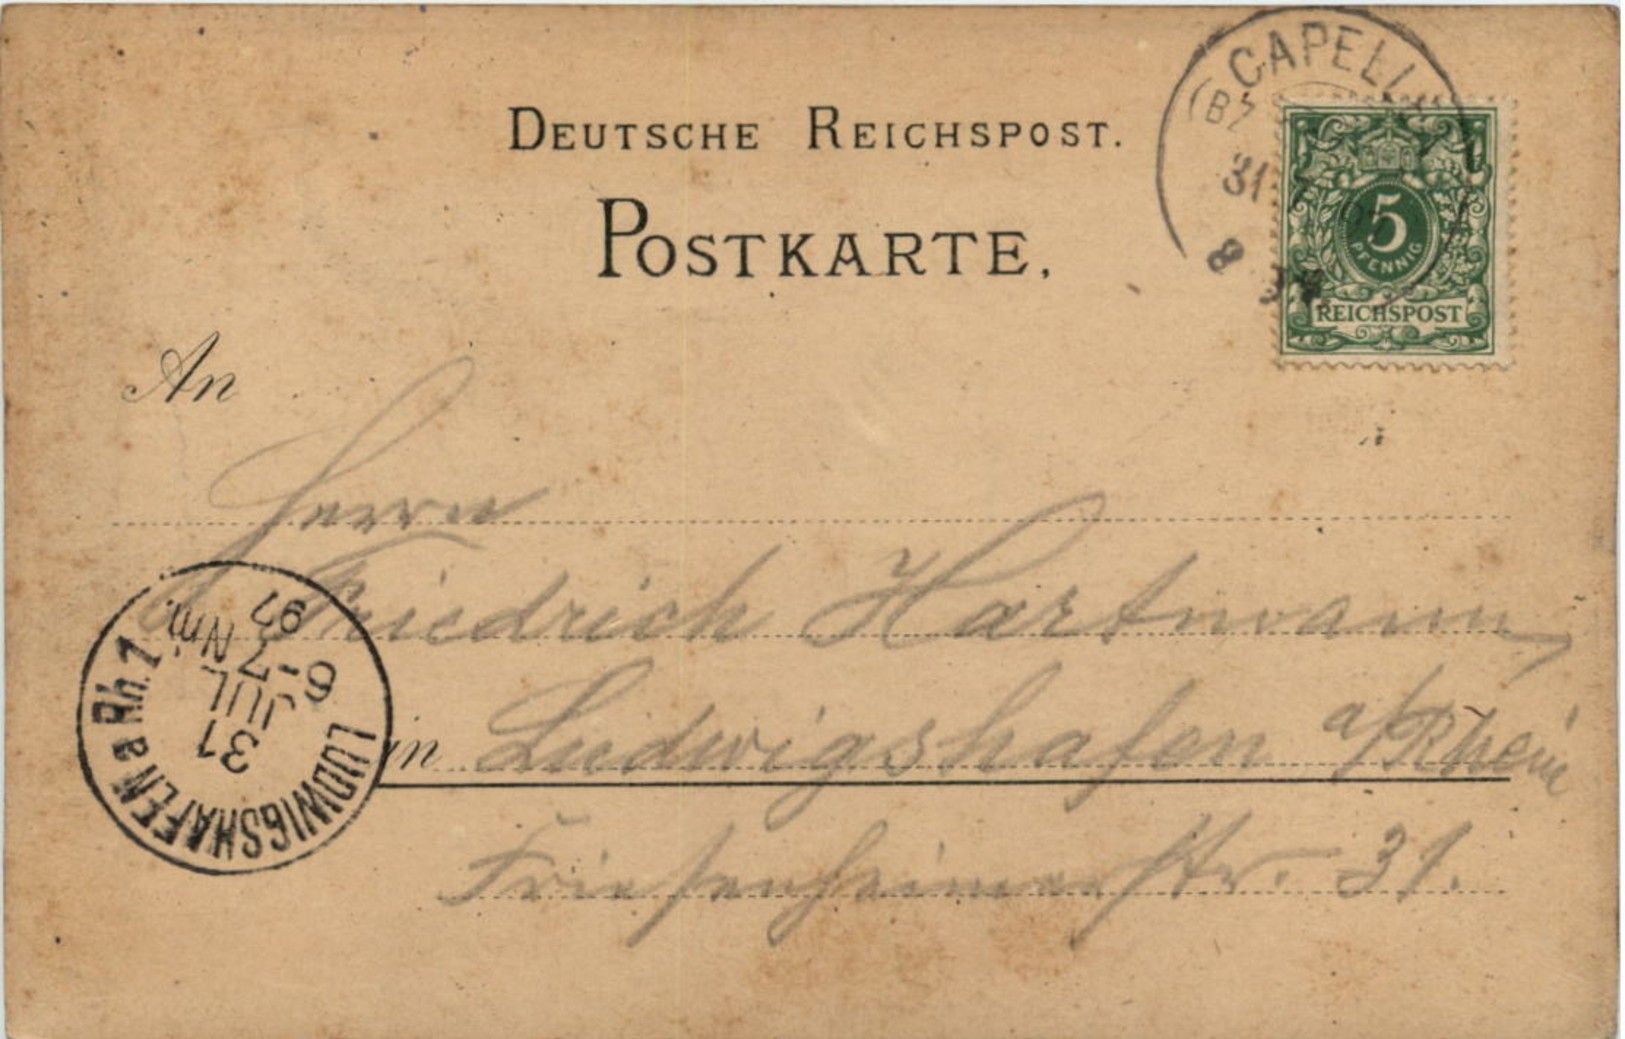 DEUTSCHE REICHSPOST.
POSTKARTE.
CAPELL
31
8
5
PFENNIG
REICHSPOST
An
Herrn
Friedrich Hartmann,
in Ludwigshafen a/Rhein
Friesenheimerstr. 31.
LUDWIGSHAFEN a Rh. 1
31
JUL
6-7
Nm.
97